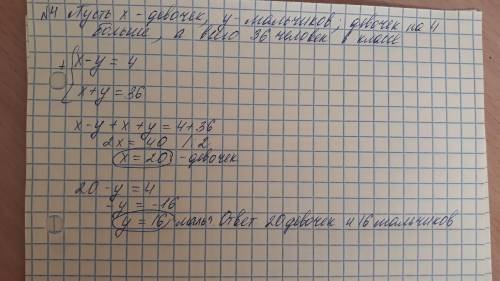 №4 Пусть x - девочек, y - мальчиков; девочек на 4
больше, а всего 36 человек в классе
+ { x-y = 4
x+y = 36
x-y+x+y = 4+36
2x = 40 /:2
x = 20 - девочек
20-y = 4
-y = -16
y = 16 маль. Ответ 20 девочек и 16 мальчиков